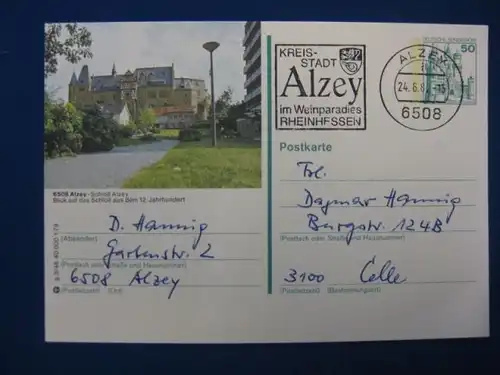 KREIS-
STADT
Alzey
im Weinparadies
RHEINHESSEN
ALZEY
24.6.8
6508
DEUTSCHE BUNDESPOST
50
6508 Alzey - Schloß Alzey
Blick auf das Schloß aus dem 12. Jahrhundert
D. Hannig
(Absender)
Gartenstr. 2
(Postfach oder Straße und Hausnummer)
6508 Alzey
(Postleitzahl) (Ort)
Postkarte
Frl.
Dagmar Hannig
Burgstr. 124B
(Postfach oder Straße und Hausnummer)
3100 Celle
(Postleitzahl) (Bestimmungsort)